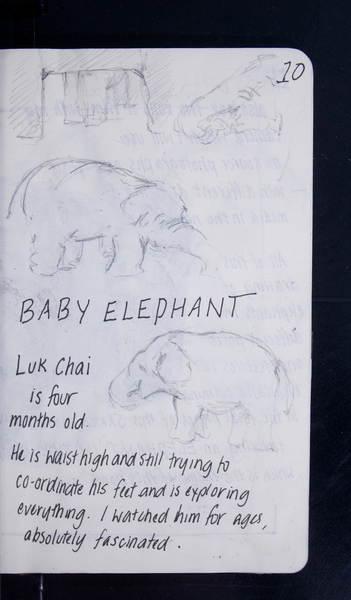 10
BABY ELEPHANT
Luk Chai
is four
months old.
He is waist high and still trying to
co-ordinate his feet and is exploring
everything. I watched him for ages,
absolutely fascinated.